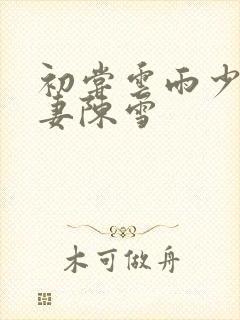 初尝雲雨少
妻陳雪
木可做舟